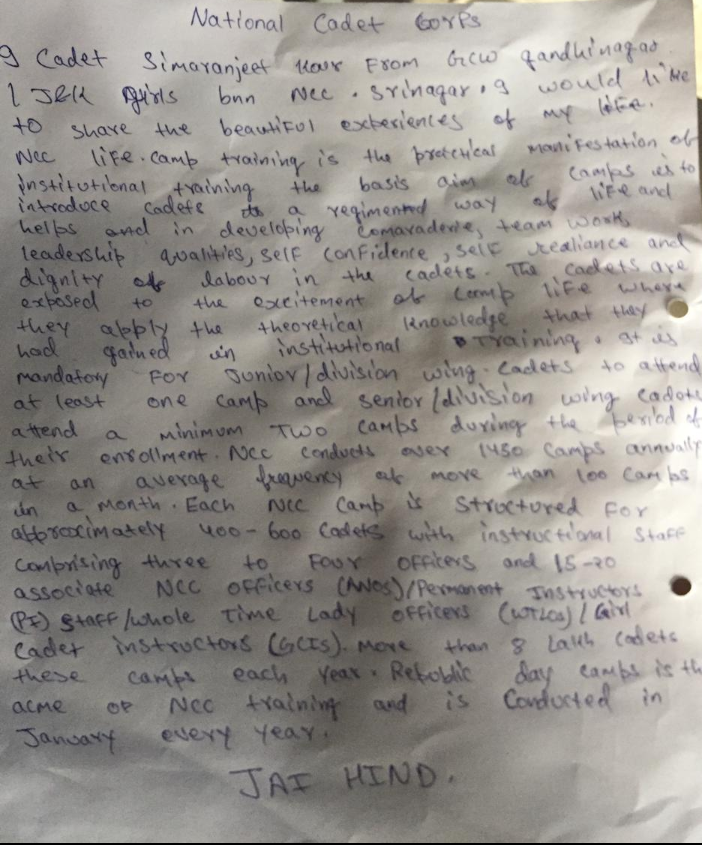 National Cadet Corps
I Cadet Simaranjeet Kour From GCW gandhinagar
1 J&K girls bnn NCC. Srinagar. I would like
to share the beautiful experiences of my life.
NCC life. camp training is the pretchical manifestation of
institutional training the basis aim of camps is to
introduce cadets to a regimented way of life and
helps and in developing comaraderie, team work,
leadership qualities, self confidence, self realiance and
dignity of labour in the cadets. The cadets are
exposed to the excitement of camp life where
they apply the theoretical knowledge that they
had gained in institutional training. It is
mandatory For Junior/division wing. Cadets to attend
at least one camp and senior/division wing cadets
attend a minimum Two camps during the period of
their enrollment. NCC conducts over 1450 camps annually
at an average frequency of more than 100 camps
in a month. Each NCC camp is structured For
approximately 400-600 cadets with instructional staff
comprising three to Four officers and 15-20
associate NCC officers (ANOs)/Permanent Instructors
(PI) staff/whole Time Lady officers (WTLOs)/Girl
Cadet instructors (GCIs). More than 8 Lakh cadets
these camps each year. Repoblic day camps is th
acme of NCC training and is Conducted in
January every year.
JAI HIND.